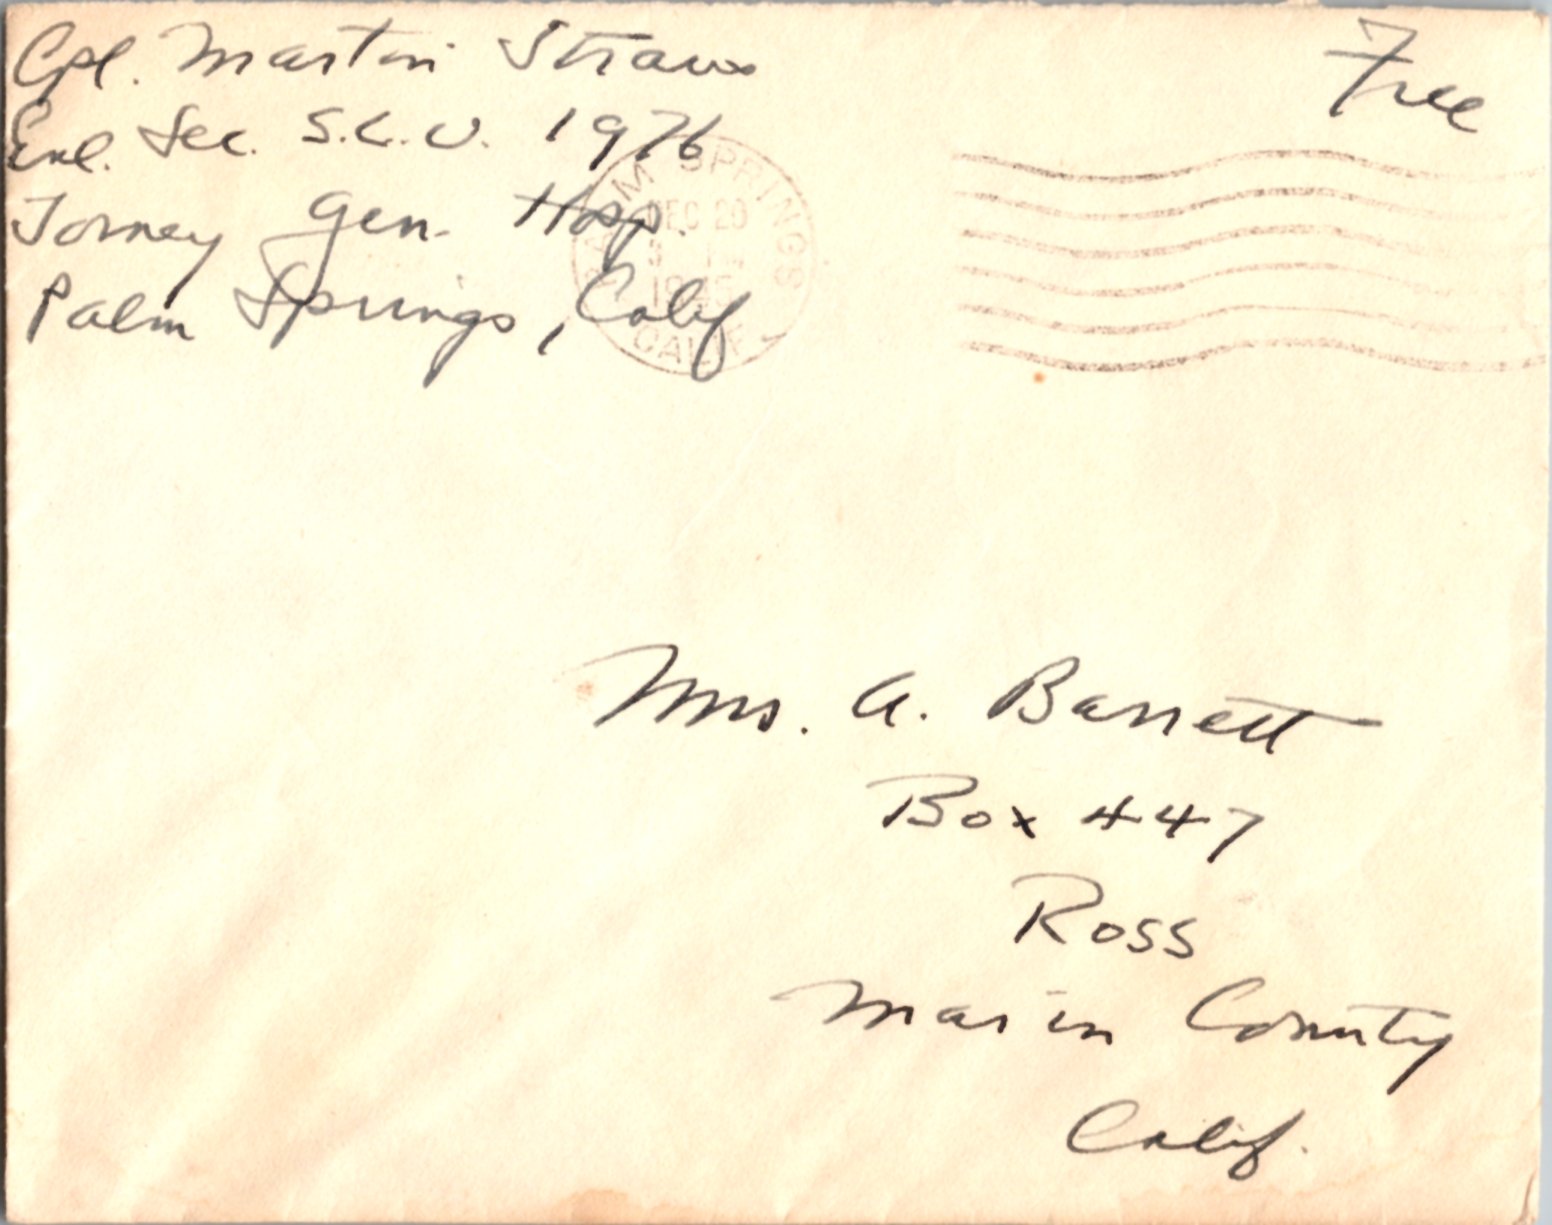 Cpl. Martin Straus
Enl. Sec. S.C.U. 1976
Torney Gen. Hosp.
Palm Springs, Calif
Free
PALM SPRINGS
DEC 20
CALIF.
Mrs. A. Barrett
Box 447
Ross
Marin County
Calif.